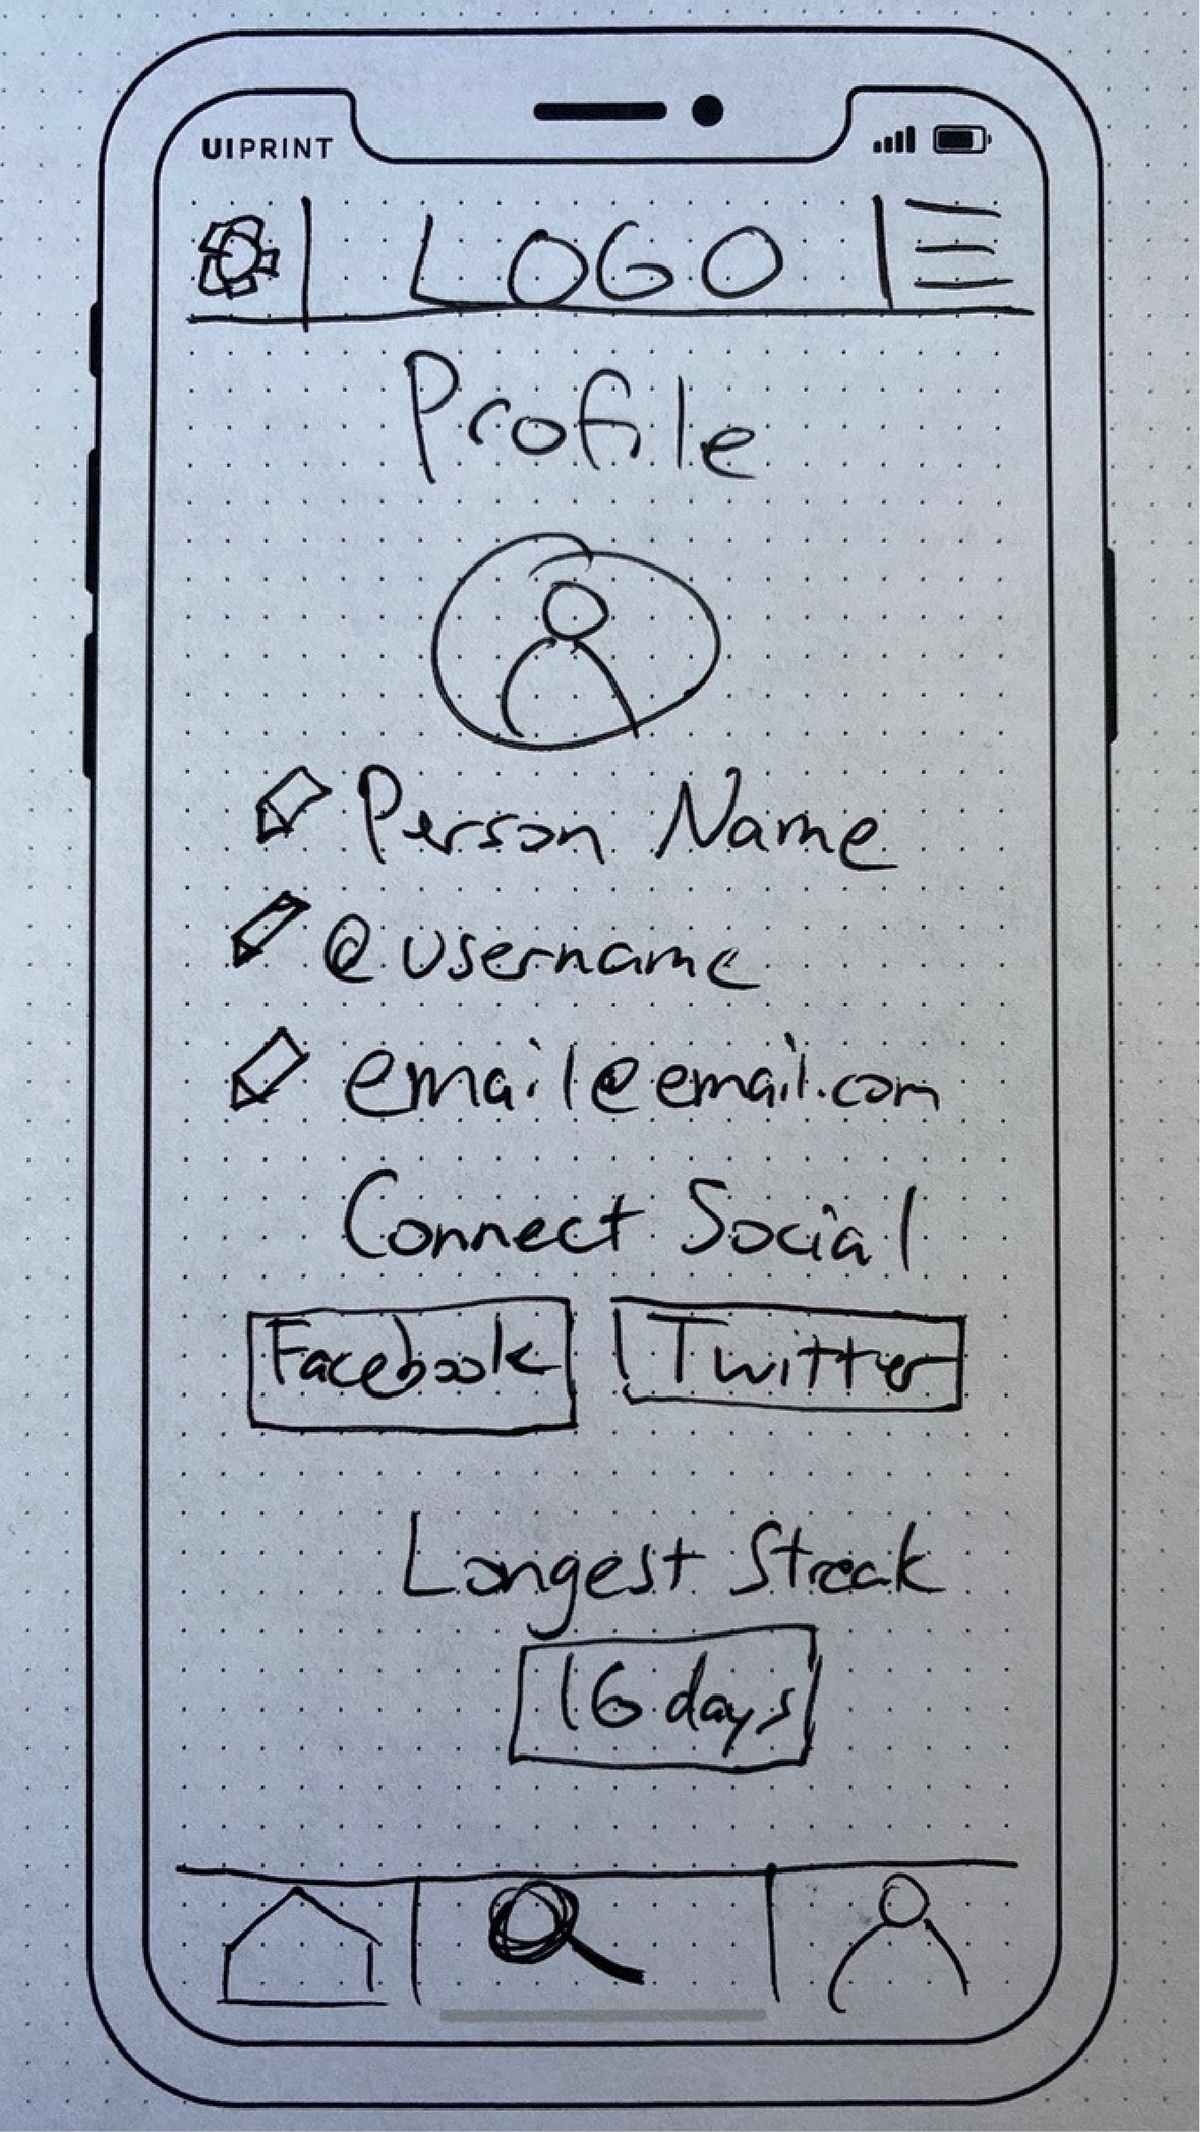 UIPRINT
LOGO
Profile
Person Name
@username
email@email.com
Connect Social
Facebook Twitter
Longest Streak
16 days